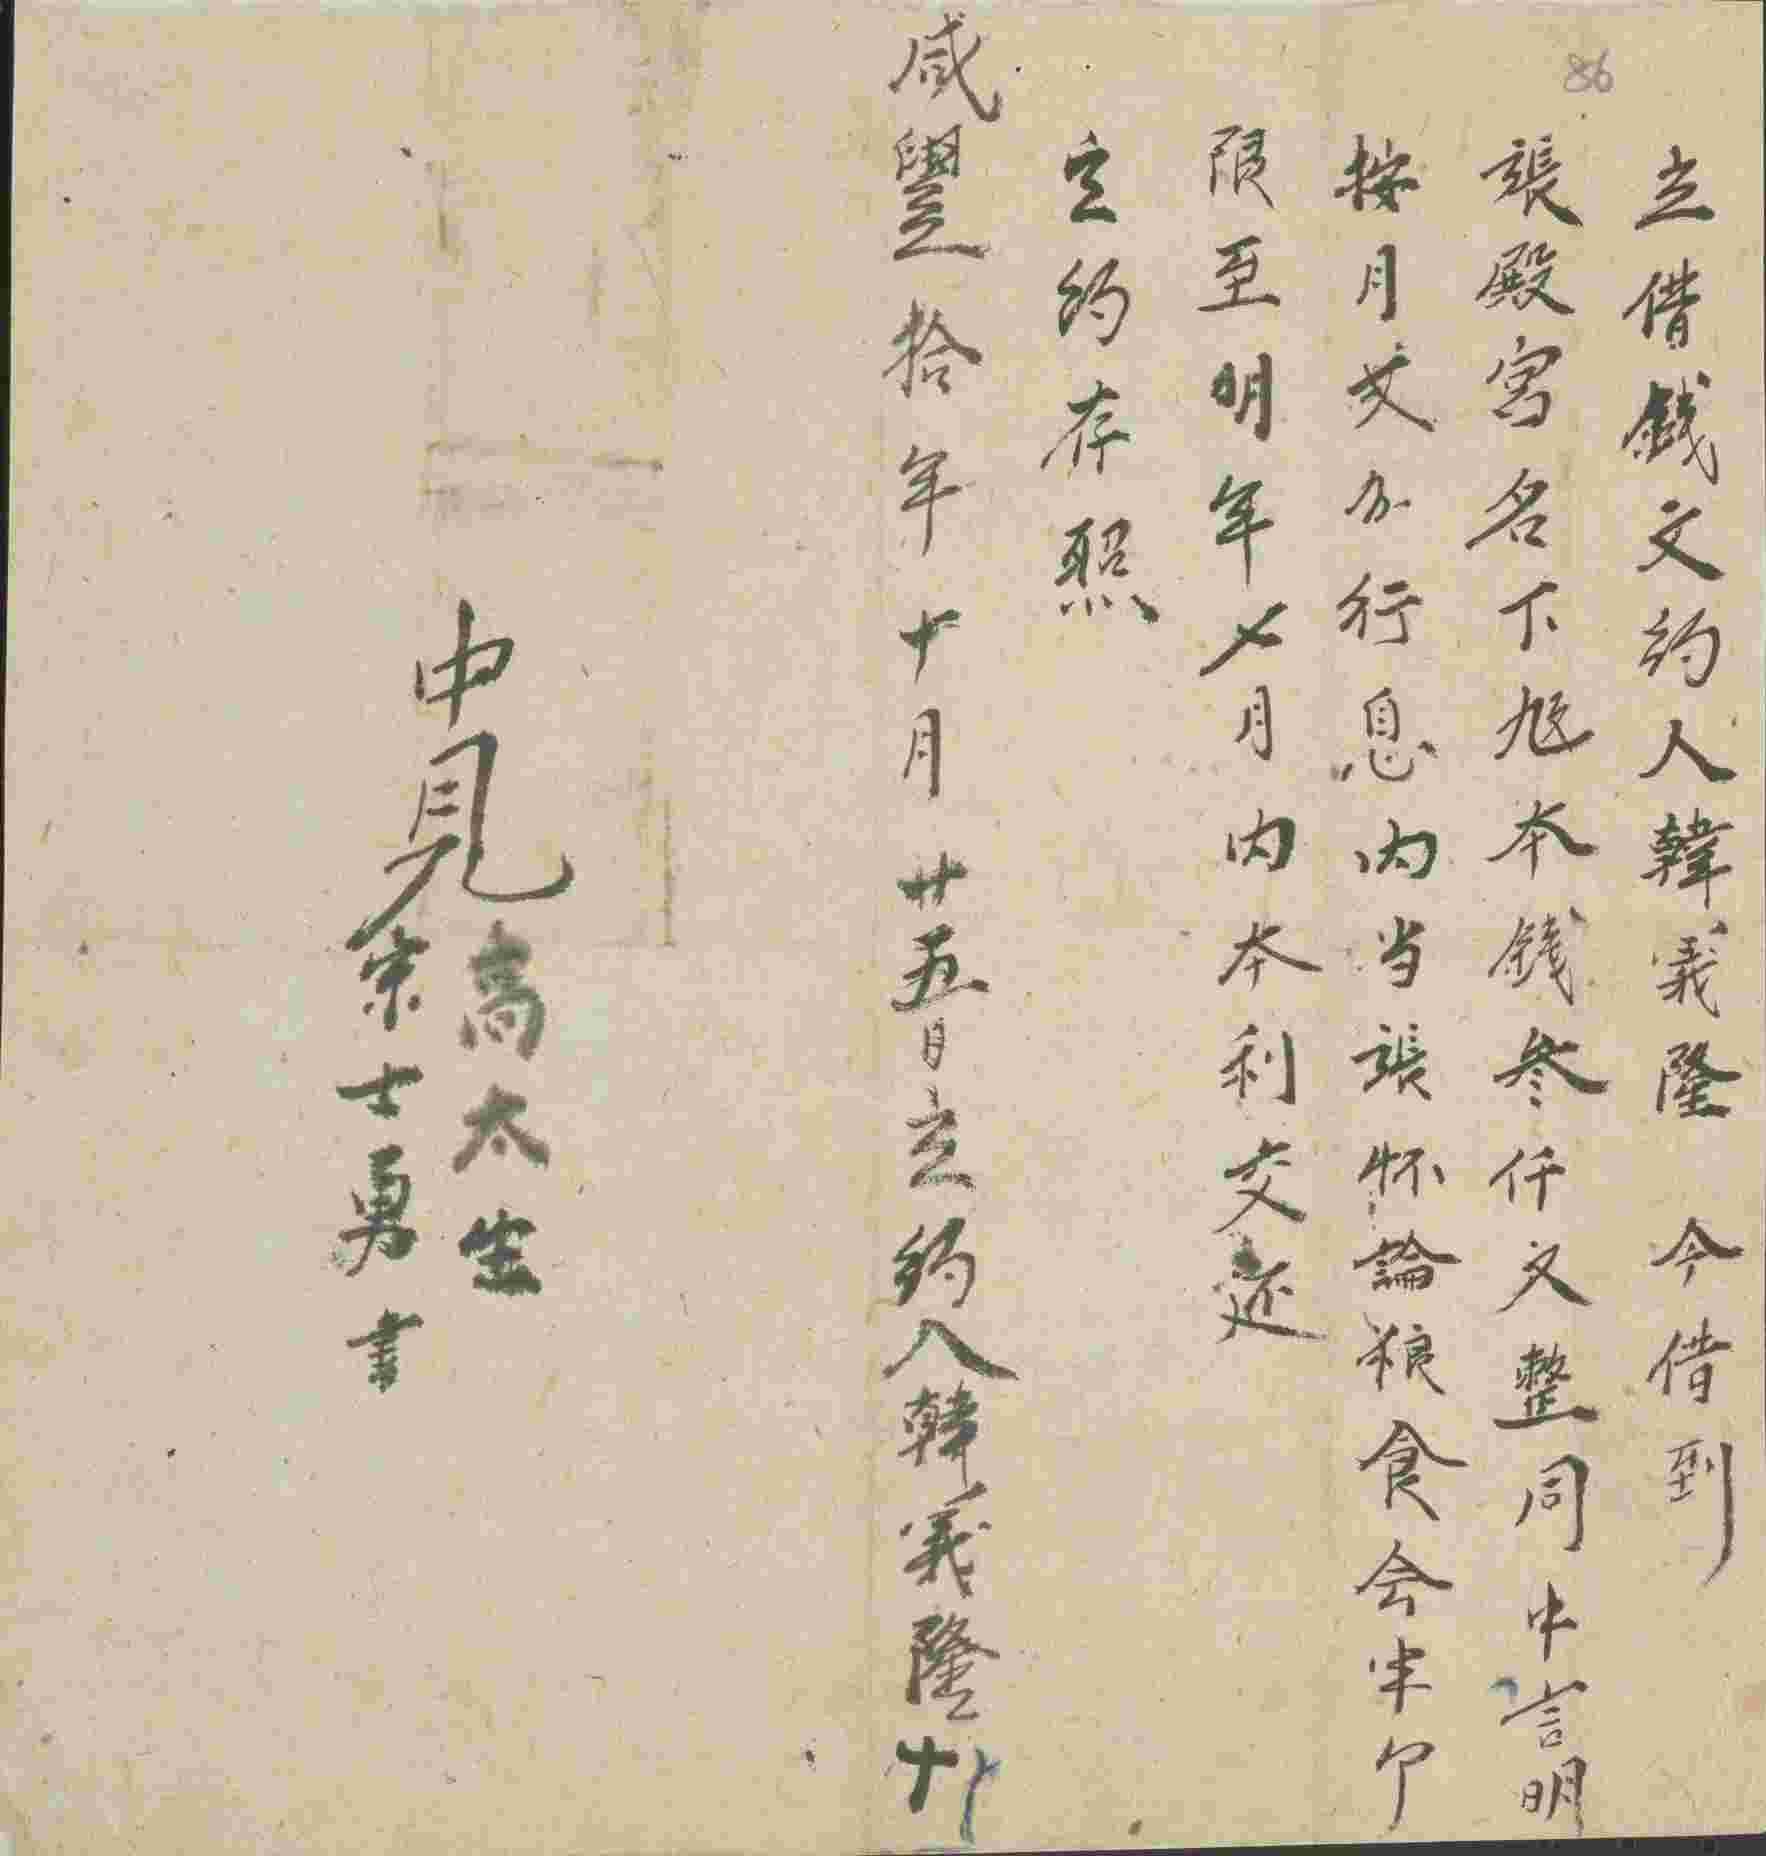 86
立借錢文約人韓義隆 今借到
張殿宮名下旭本錢叁仟文整同中言明
按月文分行息内当張怀論粮食会半
限至明年メ月内本利交还
立約存照
咸豐拾年十月廿五日立約人韓義隆十
中見 高太生
宗士勇書